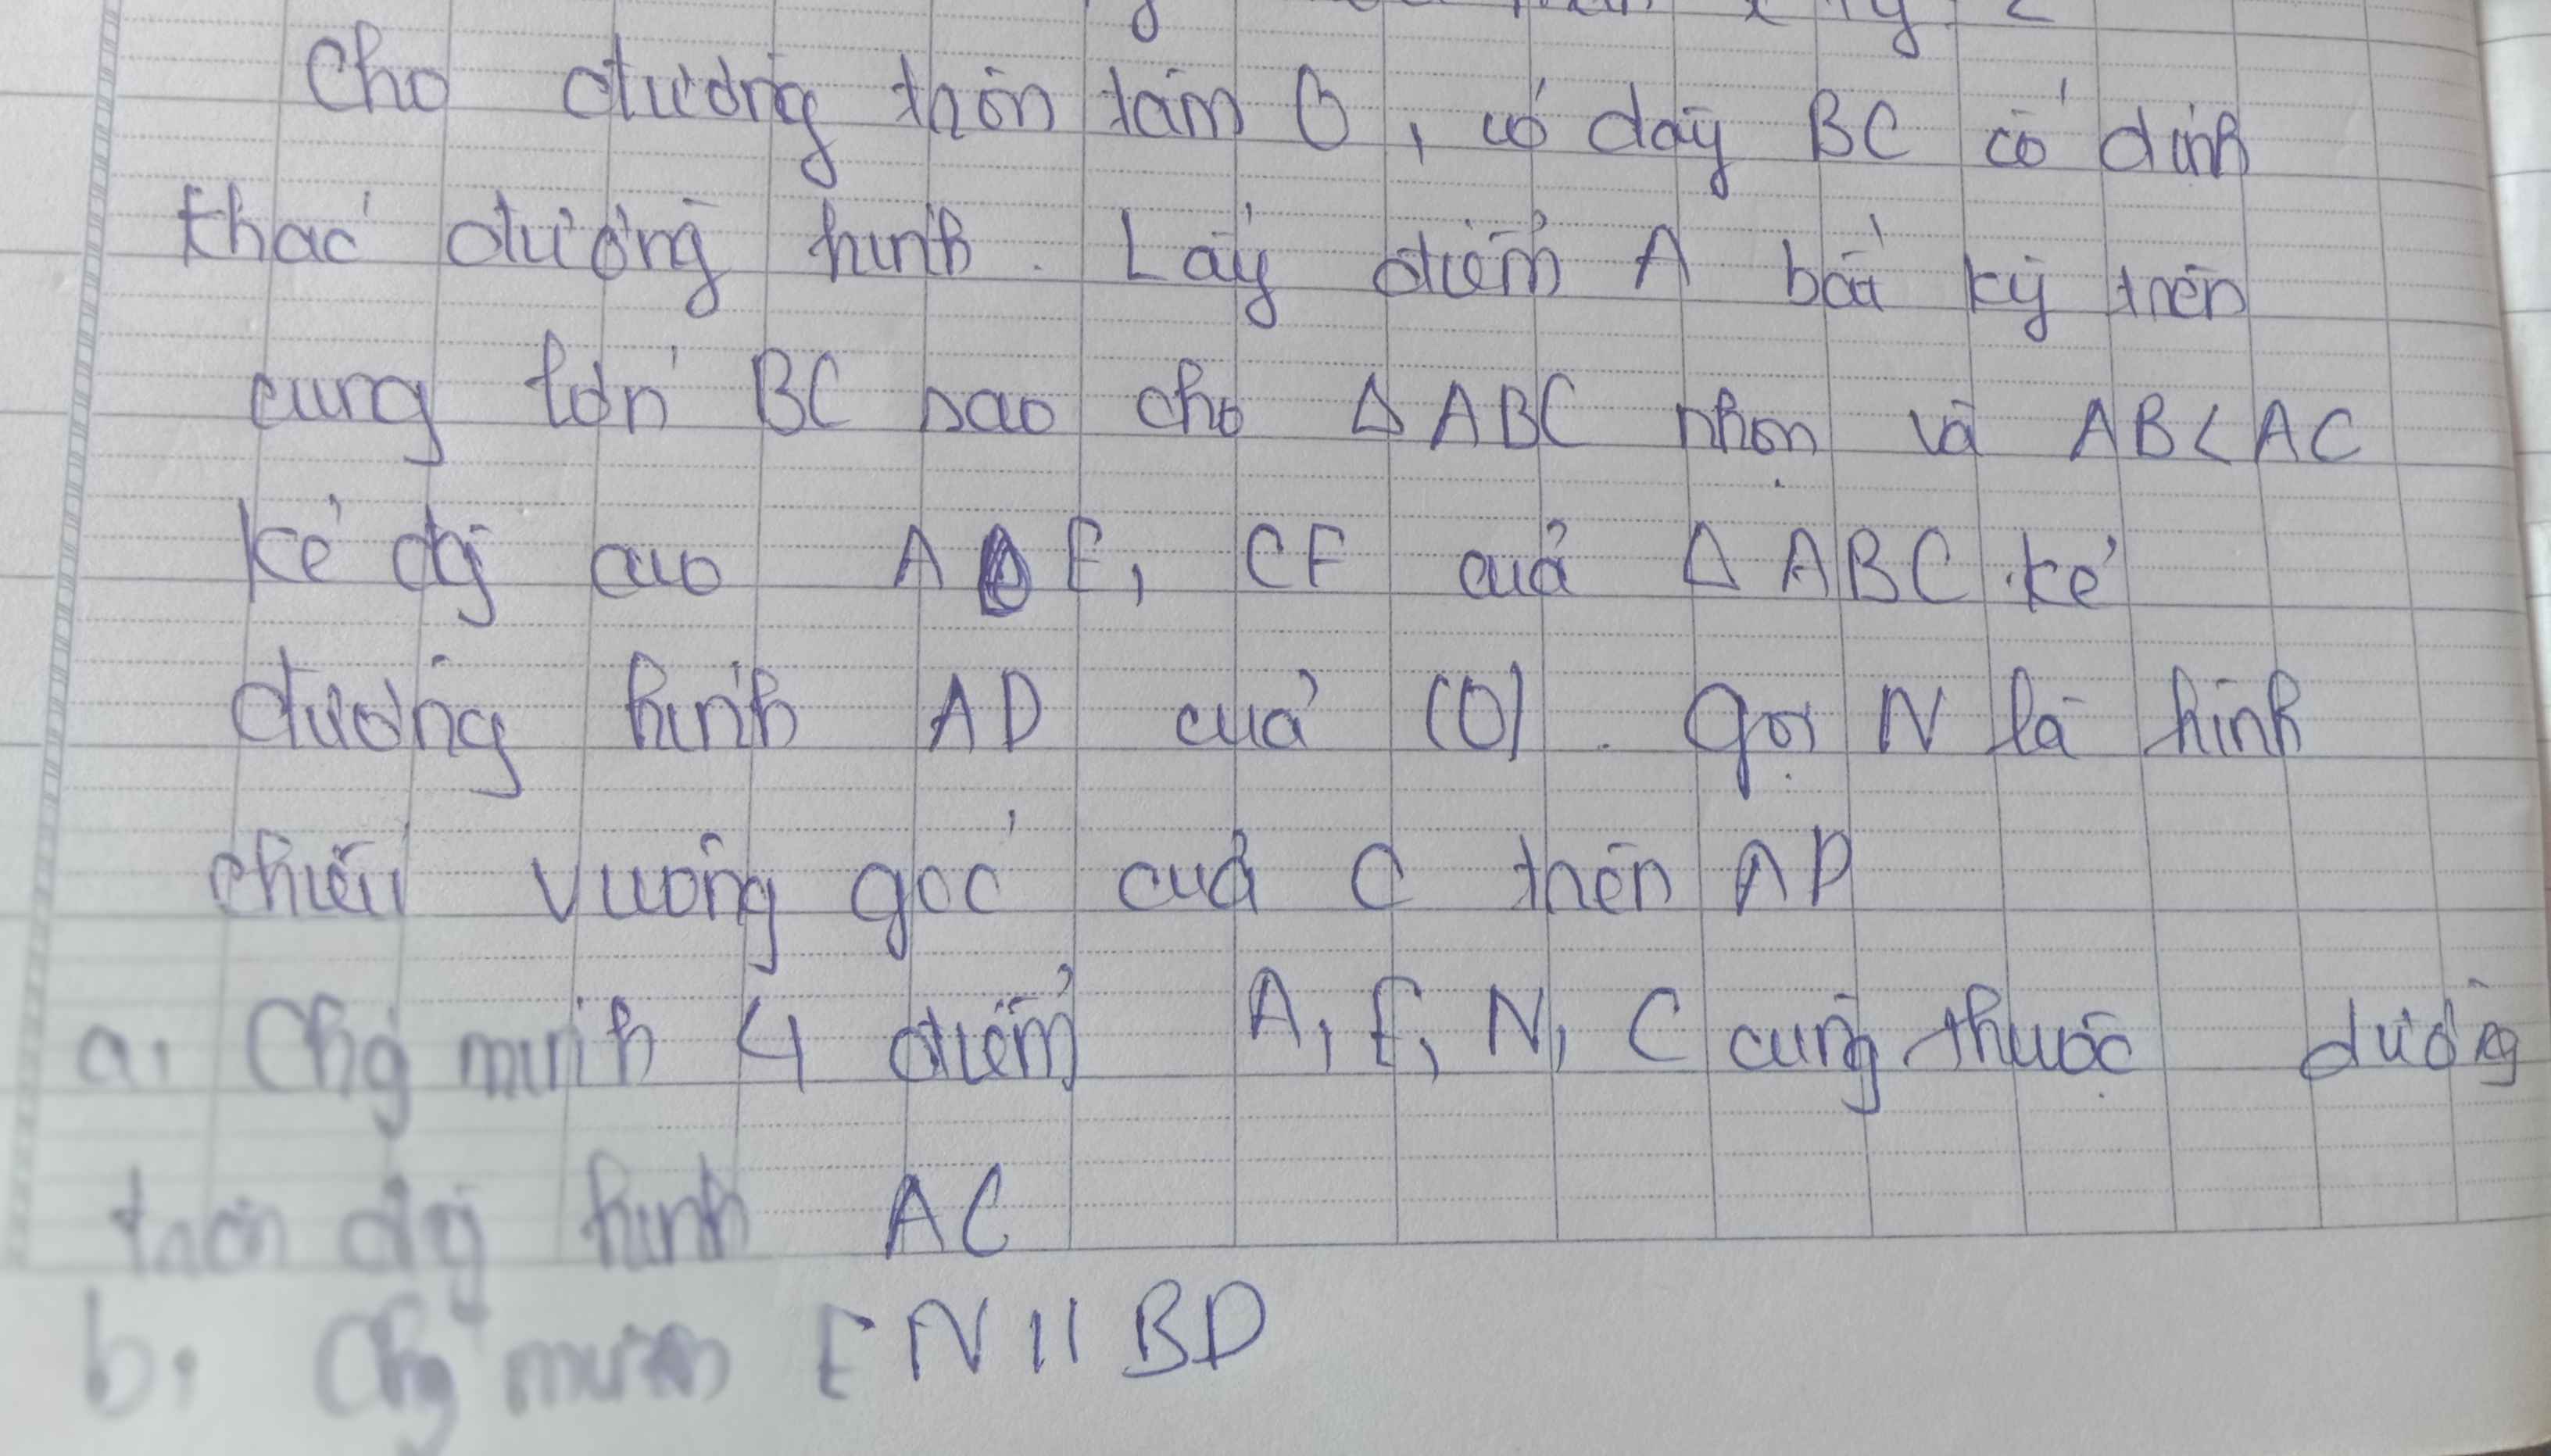 Cho đường tròn tâm O, có dây BC cố định
khác đường kính. Lấy điểm A bất kỳ trên
cung lớn BC sao cho Δ ABC nhọn và AB < AC
kẻ đg cao A E, CF của Δ ABC. kẻ
đường kính AD của (O). Gọi N là hình
chiếu vuông góc của C trên AD
a, Chg minh 4 điểm A, E, N, C cùng thuộc đường
tròn đg kính AC
b, Chg minh EN // BD